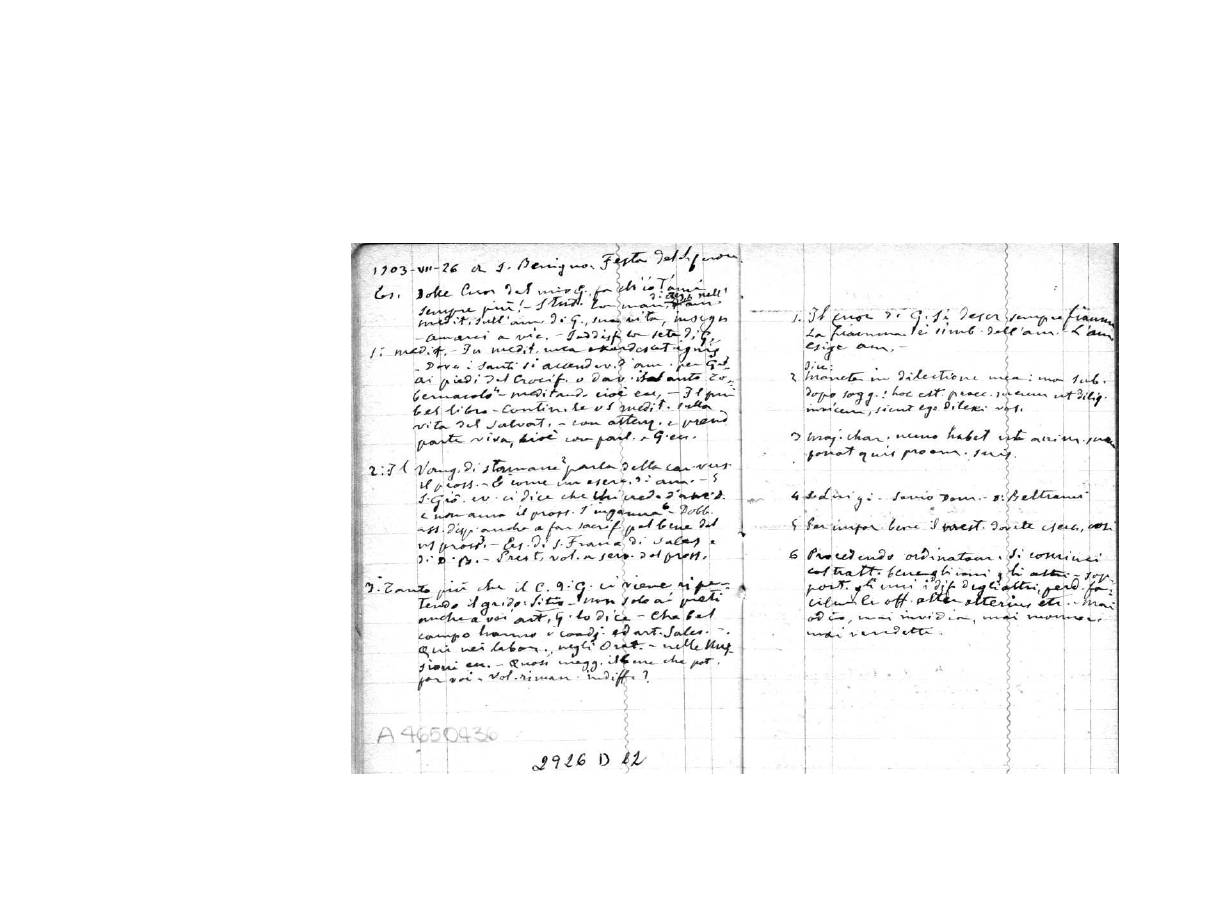 1903-VII-26 a S. Benigno. Festa del
Es. Dolce Cuor del mio G. fa ch'io t'ami
sempre più! -
medit. sull'am. di G., sua vita, insegn
- amarci a vic. - Soddisf. la sete di G.
1: medit. - In medit. mea exardescet ignis
- Dove i Santi si accendev. d'am. per G?
ai piedi del Crocif. o dav. al santo Ta-
bernacolo - meditando cioè ecc. - Il più
bel libro - Contin. le vs medit. sulla
vita del Salvat. - con attenz. e prend
parte viva, cioè con parl. a G. ecc.
2: Il Vang. di parla della car. vers
il pross. - È come un eserc. di am. -
S. Giò. ev. ci dice che chi crede d'am. D.
e non ama il pross. s'inganna - Dobb.
ess. disp. anche a far sacrif. pel bene del
vs pross. - Es. di S. Franc. di Sales e
di D. B. - Prest. vol. a serv. del pross.
3: Tanto più che il C. di G. ci viene ripe-
tendo il grido: Sitio - non solo ai preti
anche a voi art. G. lo dice - Che bel
campo hanno i coadj. ed art. Sales. -
Qui nei labor., negli Orat. - nelle Mis-
sioni ecc. - Quasi magg. il bene che pot.
far voi - Vol. riman. indiff.?
A 4650436
2926 D 22
1. Il cuor di G. si descr. sempre fiamm
La fiamma è simb. dell'am. L'am
esige am. -
dice:
2 Manete in dilectione mea: ma sub.
dopo sogg.: hoc est praec. meum ut dilig.
invicem, sicut ego dilexi vos.
3 Maj. char. nemo habet ut anim. sua
ponat quis pro am. suis.
4 S. Luigi - Savio Dom. - D. Beltrami
5 Per impar. bene dovete eserc.
6 Procedendo ordinatam. si cominci
coi tratt. bene gli uni gli altri - sop-
port. gli uni i dif. degli altri, perd. fa-
cilm. le off. alter alterius etc. - Mai
odio, mai invidia, mai
mai vendette.